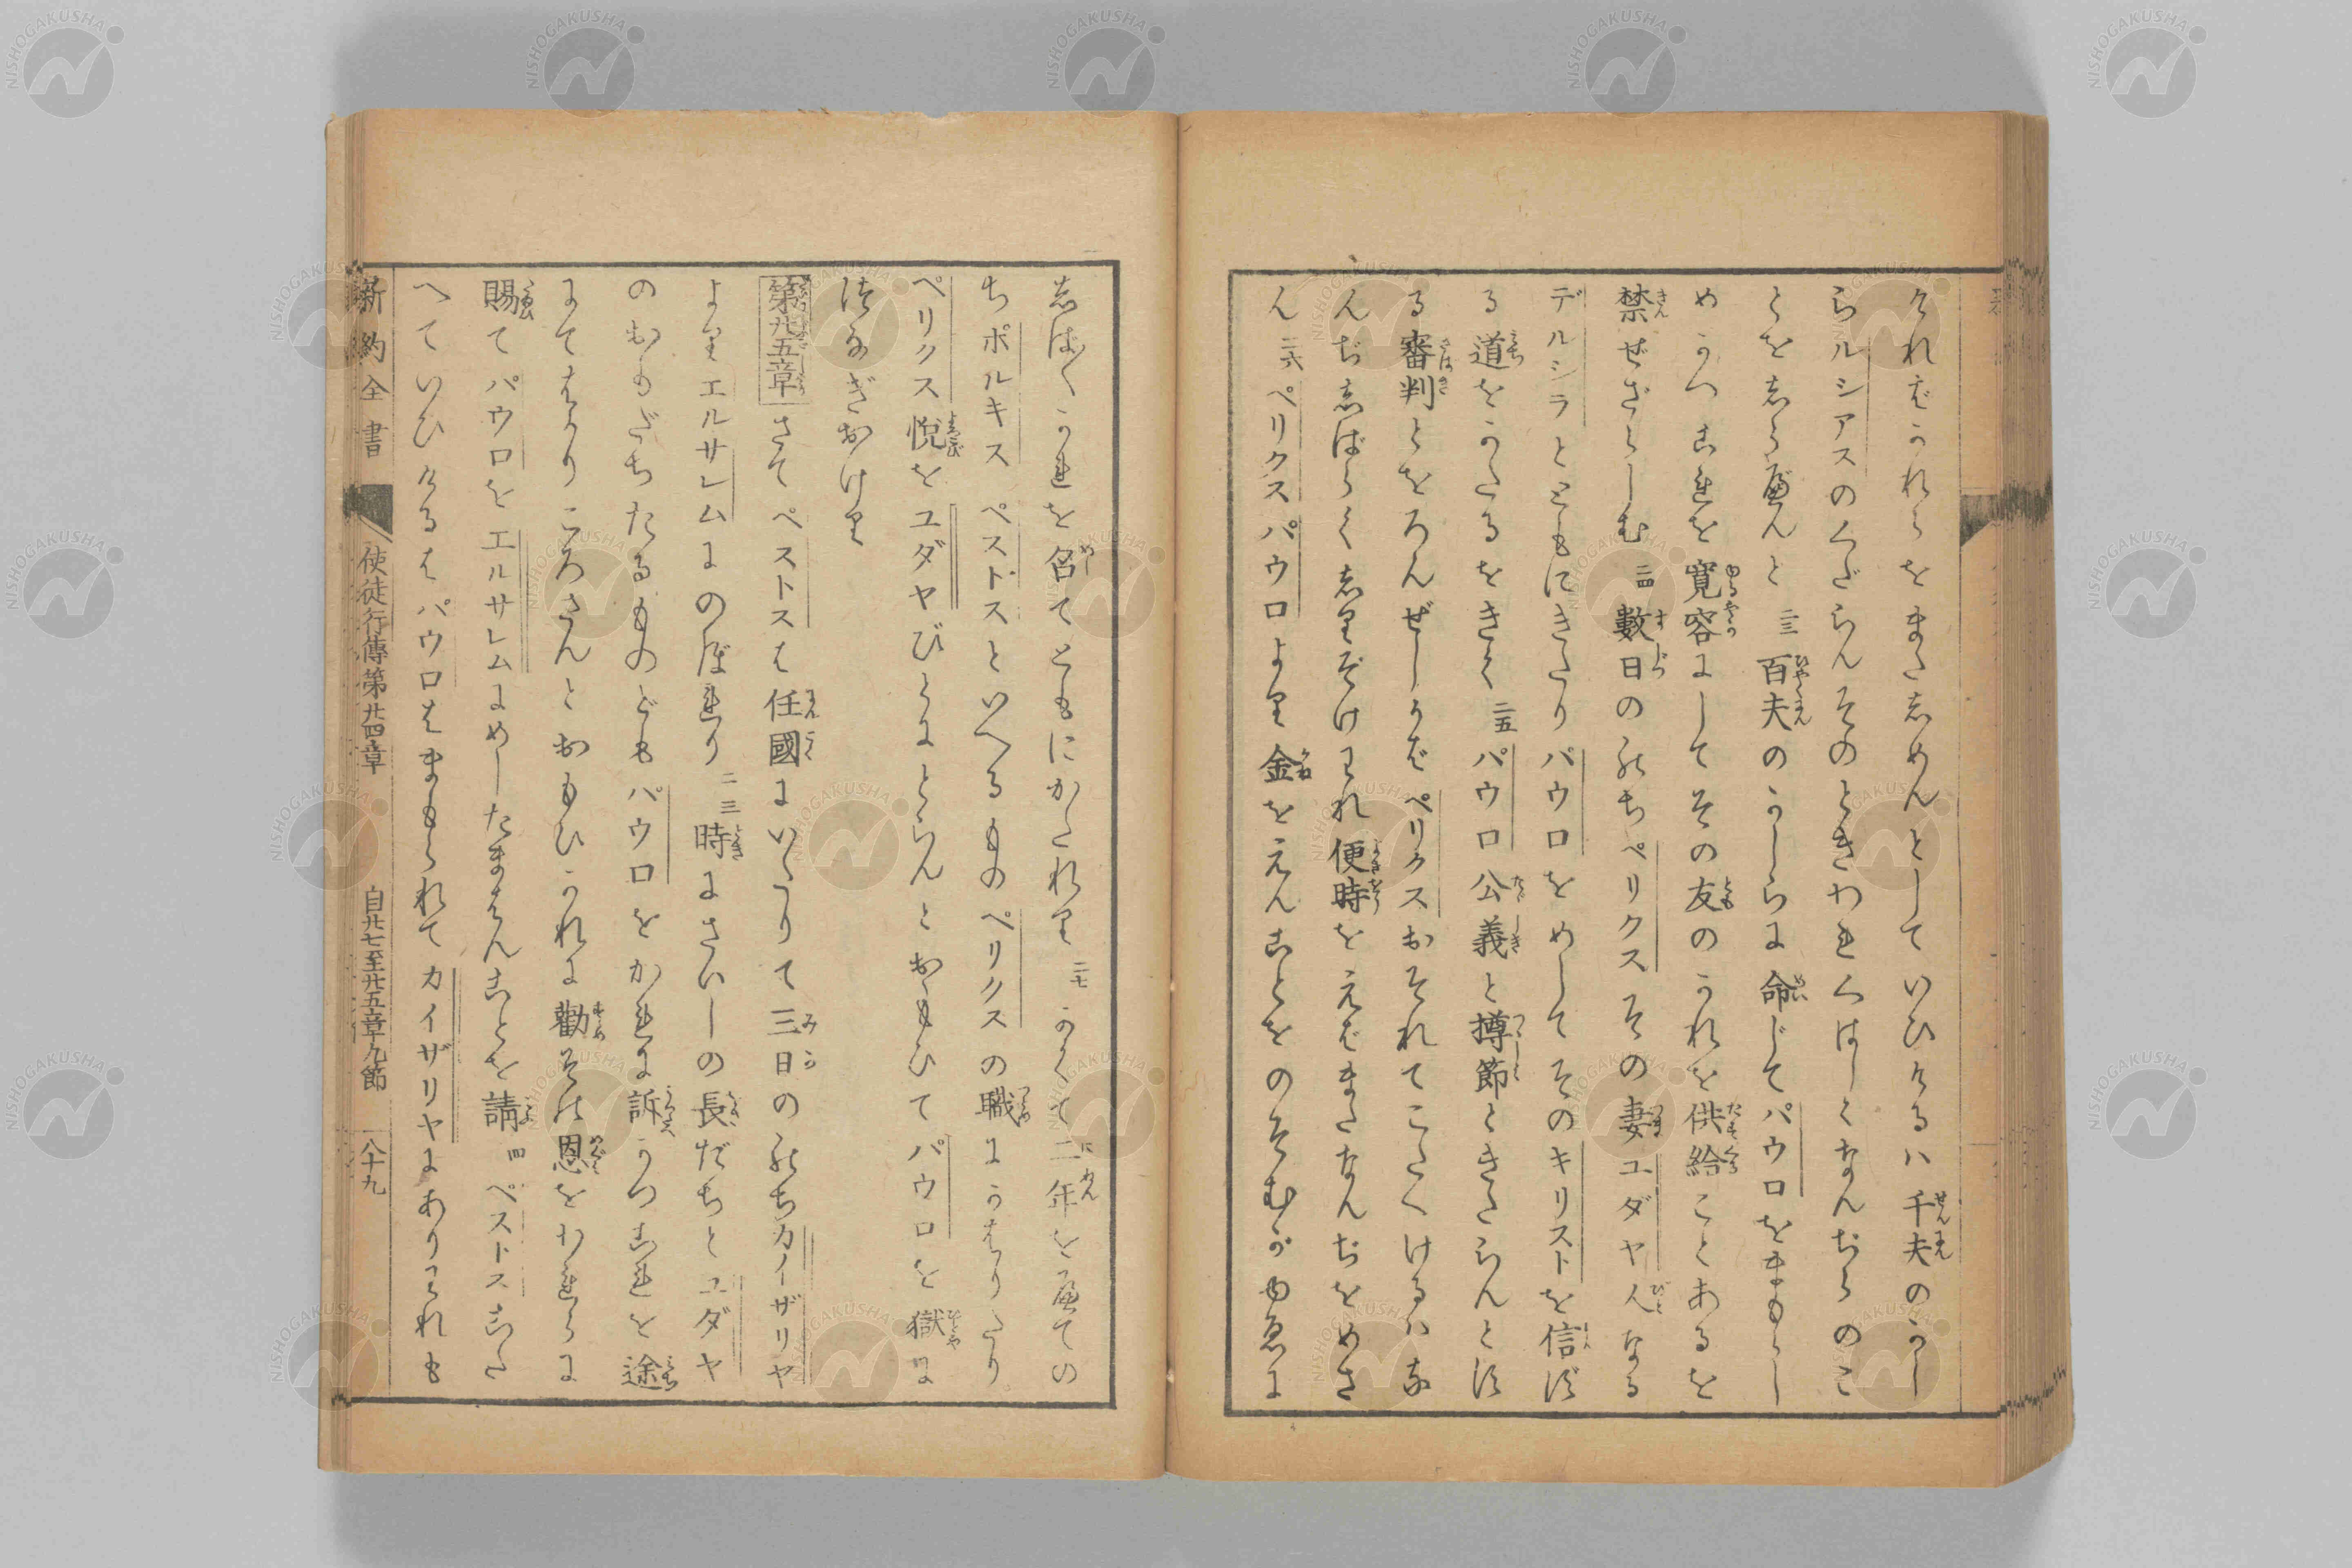 けれバかれらをまたしめんとしていひけるハ千夫のかし
らルシアスのくだらんそのときわれくはしくなんぢらのこ
とをしらべんと 二三 百夫のかしらに命じてパウロをまもらし
めかつこれを寛容にしてその友のかれを供給ことあるを
禁ぜざらしむ 二四 數日ののちペリクスその妻ユダヤ人なる
デルシラとともにきたりパウロをめしてそのキリストを信ず
る道をかたるをきく 二五 パウロ公義と撙節ときたらんとす
る審判とをろんぜしかバペリクスおそれてこたへけるハな
んぢしばらくしりぞけわれ便時をえバまたなんぢをめさ
ん 二六 ペリクスパウロより金をえんことをのぞむがゆゑに
しば〳〵かれを召てともにかたれり 二七 かくて二年をへての
ちポルキスペストスといへるものペリクスの職にかはりたり
ペリクス悦をユダヤびとにとらんとおもひてパウロを獄に
つなぎおけり
第廿五章 さてペストスは任國にいたりて三日ののちカイザリヤ
よりエルサレムにのぼれり 二 三 時にさいしの長だちとユダヤ
のおもだちたるものどもパウロをかれに訴かつこれを途
にてはかりころさんとおもひかれに勸その恩をわれらに
賜てパウロをエルサレムにめしたまはんことを請 四 ペストスこた
へていひけるはパウロはまもられてカイザリヤにありわれも
新約全書 使徒行傳第廿四章 自廿七至廿五章九節 八十九